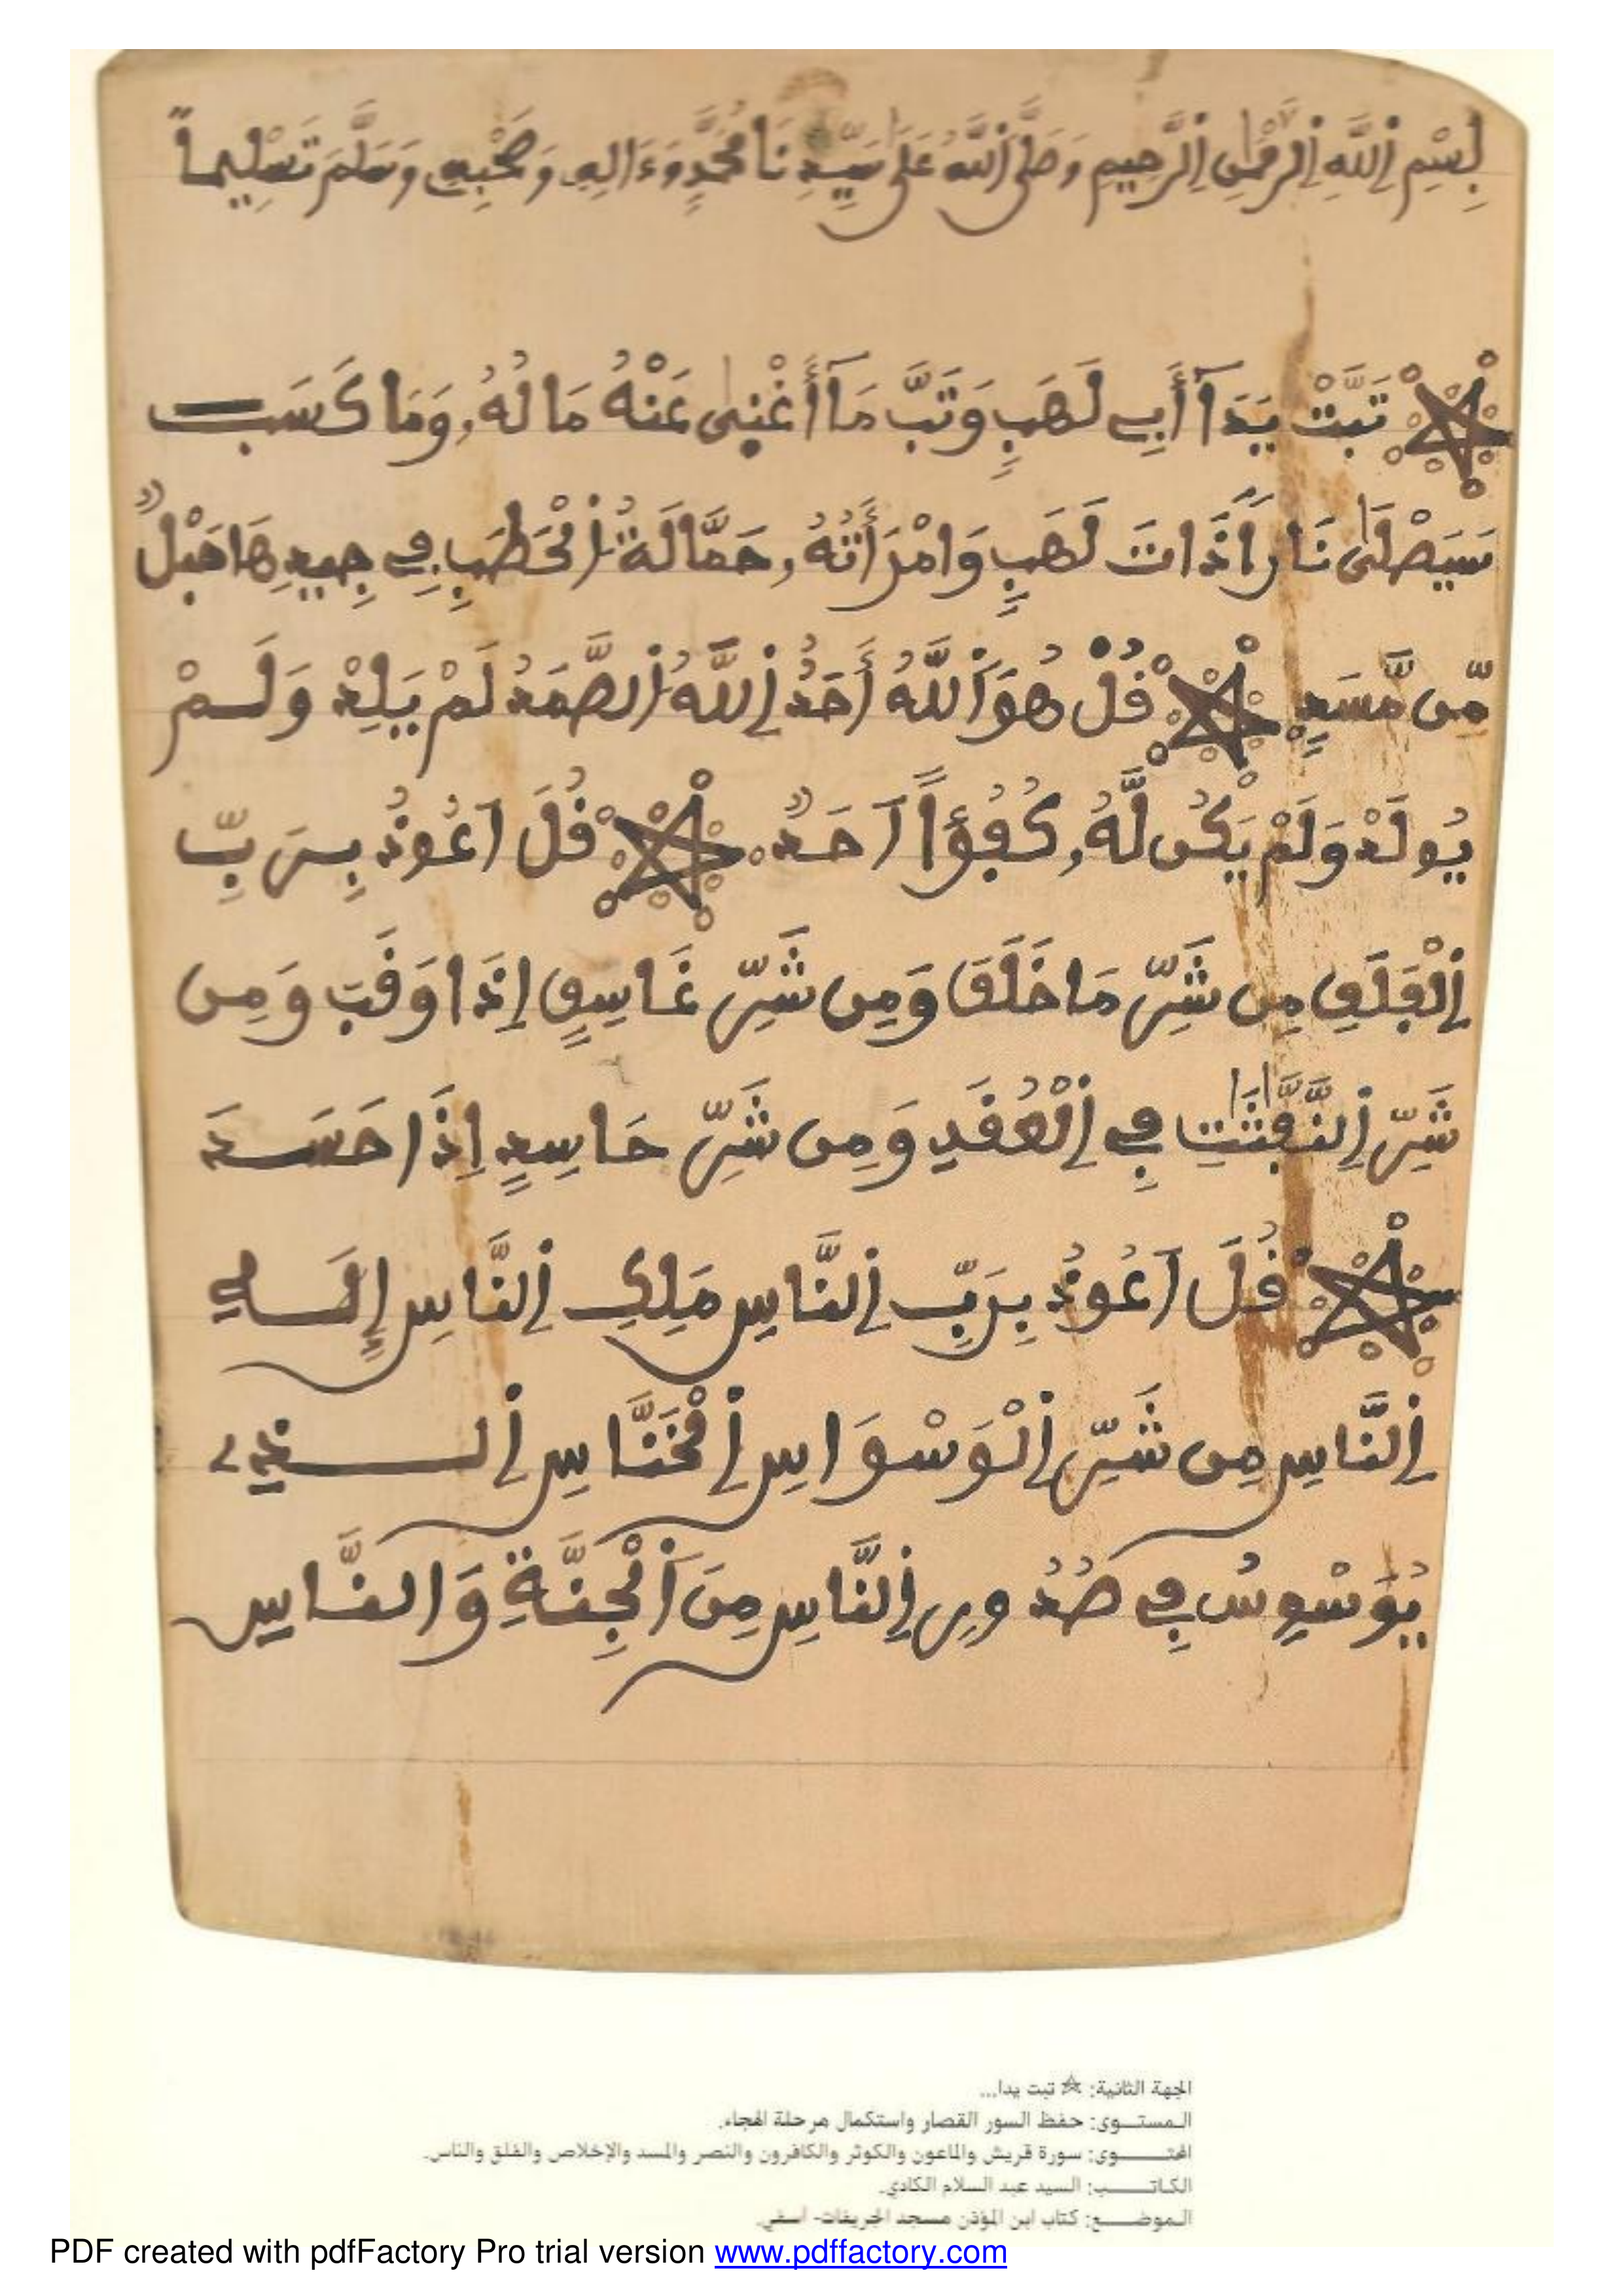 بِسْمِ اِللَّهِ اِلرَّحْمَٰنِ اِلرَّحِيمِ وَصَلَّى اَللَّهُ عَلَىٰ سَيِّدِنَا مُحَمَّدٍ وَءَالِهِ وَصَحْبِهِ وَسَلَّمَ تَسْلِيماً
☆ تَبَّتْ يَدَآ أَبِے لَهَبٍ وَتَبَّ مَآ أَغْنٜىٰ عَنْهُ مَالُهُۥ وَمَا كَسَبَ
سَيَصْلَىٰ نَاراً ذَاتَ لَهَبٍ وَامْرَأَتُهُۥ حَمَّالَةُ اُلْحَطَبِ فِے جِيدِهَا حَبْلٌ
مِّن مَّسَدٍ ☆ قُلْ هُوَ اَللَّهُ أَحَدٌ اِللَّهُ اُلصَّمَدُ لَمْ يَلِدْ وَلَمْ
يُولَدْ وَلَمْ يَكُن لَّهُۥ كُفُؤاً اَحَدٌ ☆ قُلَ اَعُوذُ بِرَبِّ
اِلْفَلَقِ مِن شَرِّ مَا خَلَقَ وَمِن شَرِّ غَاسِقٍ إِذَا وَقَبَ وَمِن
شَرِّ اِلنَّفَّٰثَٰتِ فِے اِلْعُقَدِ وَمِن شَرِّ حَاسِدٍ اِذَا حَسَدَ
☆ قُلَ اَعُوذُ بِرَبِّ اِلنَّاسِ مَلِكِ اِلنَّاسِ إِلَٰهِ
اِلنَّاسِ مِن شَرِّ اِلْوَسْوَاسِ اِلْخَنَّاسِ اِلذِے
يُوَسْوِسُ فِے صُدُورِ اِلنَّاسِ مِنَ اَلْجِنَّةِ وَالنَّاسِ
الجهة الثانية: ☆ تبت يدا...
المستــوى: حفظ السور القصار واستكمال مرحلة الهجاء.
المحتــوى: سورة قريش والماعون والكوثر والكافرون والنصر والمسد والإخلاص والفلق والناس.
الكاتــب: السيد عبد السلام الكادي.
الموضــع: كتاب ابن المؤذن مسجد الجريفات- آسفي.
PDF created with pdfFactory Pro trial version www.pdffactory.com